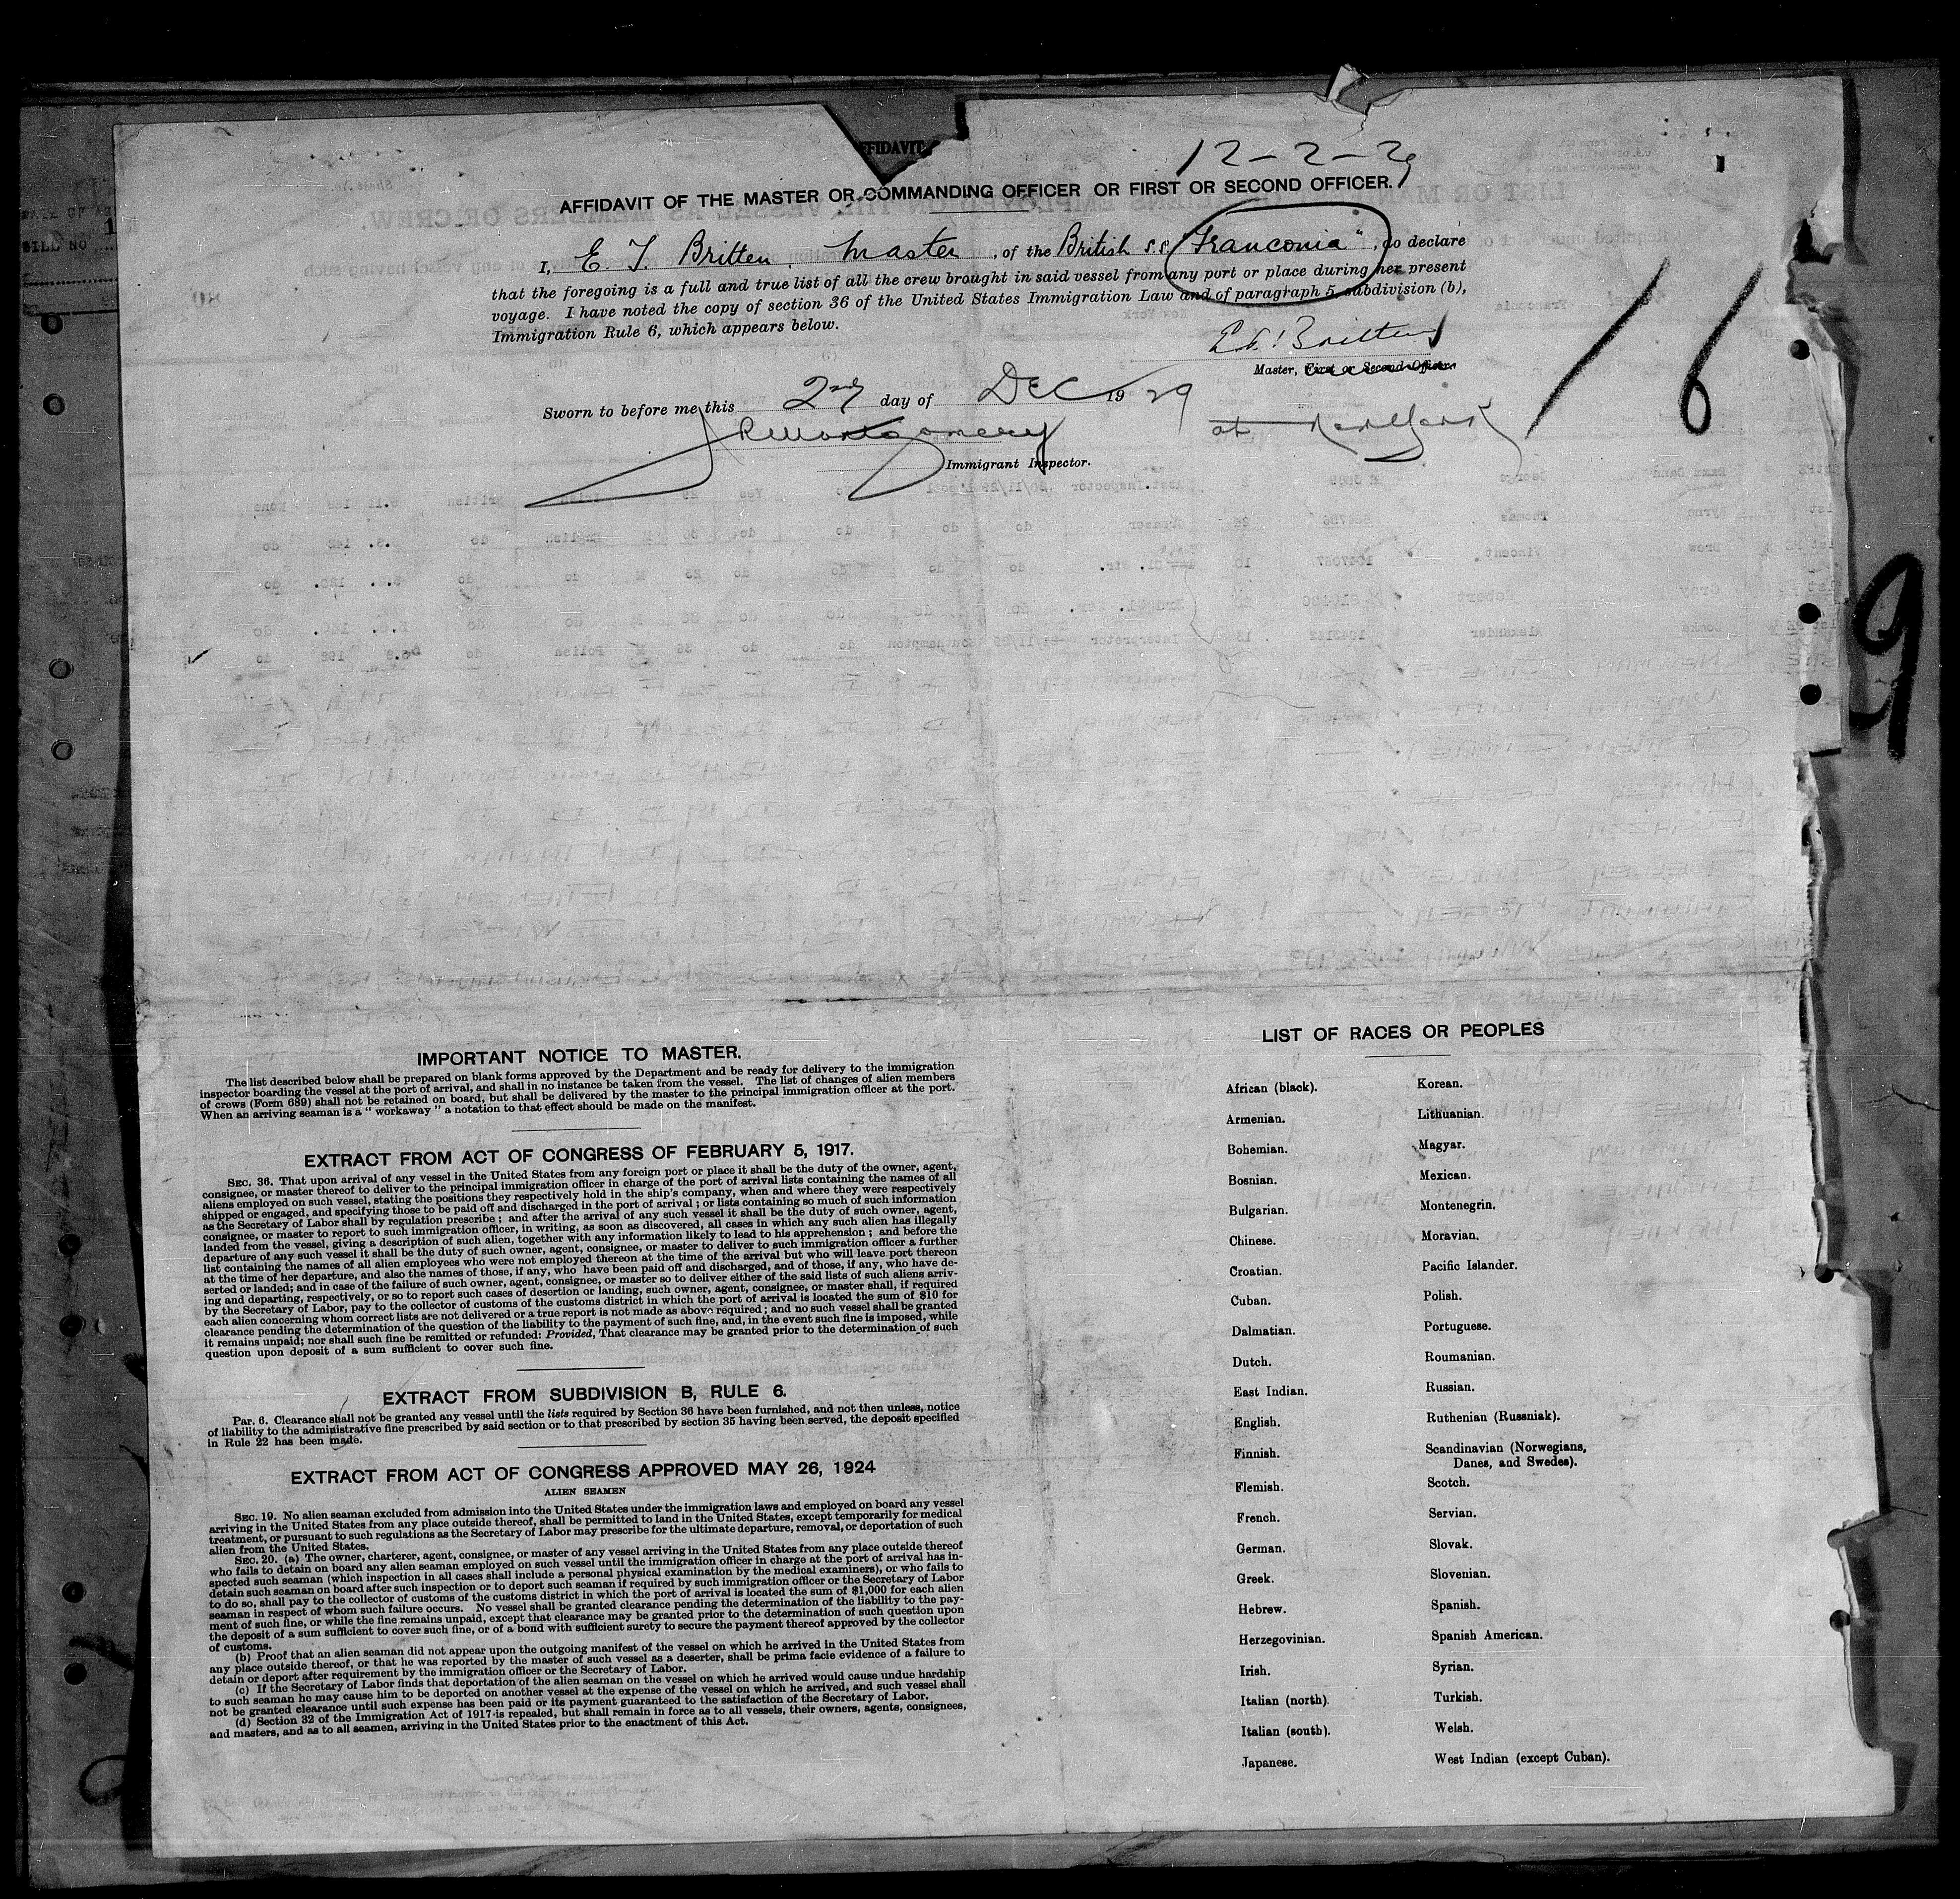 FIDAVIT
12-2-29
AFFIDAVIT OF THE MASTER OR COMMANDING OFFICER OR FIRST OR SECOND OFFICER.
I, E. T. Britten Master, of the British s.s. "Franconia", do declare
that the foregoing is a full and true list of all the crew brought in said vessel from any port or place during her present
voyage. I have noted the copy of section 36 of the United States Immigration Law and of paragraph 5, subdivision (b),
Immigration Rule 6, which appears below.
E.T. Britten
Master, First or Second Officer.
16
Sworn to before me this 2nd day of Dec 1929 at New York
Montgomery
Immigrant Inspector.
9
IMPORTANT NOTICE TO MASTER.
The list described below shall be prepared on blank forms approved by the Department and be ready for delivery to the immigration
inspector boarding the vessel at the port of arrival, and shall in no instance be taken from the vessel. The list of changes of alien members
of crews (Form 689) shall not be retained on board, but shall be delivered by the master to the principal immigration officer at the port.
When an arriving seaman is a " workaway " a notation to that effect should be made on the manifest.
EXTRACT FROM ACT OF CONGRESS OF FEBRUARY 5, 1917.
SEC. 36. That upon arrival of any vessel in the United States from any foreign port or place it shall be the duty of the owner, agent,
consignee, or master thereof to deliver to the principal immigration officer in charge of the port of arrival lists containing the names of all
aliens employed on such vessel, stating the positions they respectively hold in the ship's company, when and where they were respectively
shipped or engaged, and specifying those to be paid off and discharged in the port of arrival ; or lists containing so much of such information
as the Secretary of Labor shall by regulation prescribe ; and after the arrival of any such vessel it shall be the duty of such owner, agent,
consignee, or master to report to such immigration officer, in writing, as soon as discovered, all cases in which any such alien has illegally
landed from the vessel, giving a description of such alien, together with any information likely to lead to his apprehension ; and before the
departure of any such vessel it shall be the duty of such owner, agent, consignee, or master to deliver to such immigration officer a further
list containing the names of all alien employees who were not employed thereon at the time of the arrival but who will leave port thereon
at the time of her departure, and also the names of those, if any, who have been paid off and discharged, and of those, if any, who have de-
serted or landed; and in case of the failure of such owner, agent, consignee, or master so to deliver either of the said lists of such aliens arriv-
ing and departing, respectively, or so to report such cases of desertion or landing, such owner, agent, consignee, or master shall, if required
by the Secretary of Labor, pay to the collector of customs of the customs district in which the port of arrival is located the sum of $10 for
each alien concerning whom correct lists are not delivered or a true report is not made as above required ; and no such vessel shall be granted
clearance pending the determination of the question of the liability to the payment of such fine, and, in the event such fine is imposed, while
it remains unpaid; nor shall such fine be remitted or refunded: Provided, That clearance may be granted prior to the determination of such
question upon deposit of a sum sufficient to cover such fine.
EXTRACT FROM SUBDIVISION B, RULE 6.
Par. 6. Clearance shall not be granted any vessel until the lists required by Section 36 have been furnished, and not then unless, notice
of liability to the administrative fine prescribed by said section or to that prescribed by section 35 having been served, the deposit specified
in Rule 22 has been made.
EXTRACT FROM ACT OF CONGRESS APPROVED MAY 26, 1924
ALIEN SEAMEN
SEC. 19. No alien seaman excluded from admission into the United States under the immigration laws and employed on board any vessel
arriving in the United States from any place outside thereof, shall be permitted to land in the United States, except temporarily for medical
treatment, or pursuant to such regulations as the Secretary of Labor may prescribe for the ultimate departure, removal, or deportation of such
alien from the United States.
SEC. 20. (a) The owner, charterer, agent, consignee, or master of any vessel arriving in the United States from any place outside thereof
who fails to detain on board any alien seaman employed on such vessel until the immigration officer in charge at the port of arrival has in-
spected such seaman (which inspection in all cases shall include a personal physical examination by the medical examiners), or who fails to
detain such seaman on board after such inspection or to deport such seaman if required by such immigration officer or the Secretary of Labor
to do so, shall pay to the collector of customs of the customs district in which the port of arrival is located the sum of $1,000 for each alien
seaman in respect of whom such failure occurs. No vessel shall be granted clearance pending the determination of the liability to the pay-
ment of such fine, or while the fine remains unpaid, except that clearance may be granted prior to the determination of such question upon
the deposit of a sum sufficient to cover such fine, or of a bond with sufficient surety to secure the payment thereof approved by the collector
of customs.
(b) Proof that an alien seaman did not appear upon the outgoing manifest of the vessel on which he arrived in the United States from
any place outside thereof, or that he was reported by the master of such vessel as a deserter, shall be prima facie evidence of a failure to
detain or deport after requirement by the immigration officer or the Secretary of Labor.
(c) If the Secretary of Labor finds that deportation of the alien seaman on the vessel on which he arrived would cause undue hardship
to such seaman he may cause him to be deported on another vessel at the expense of the vessel on which he arrived, and such vessel shall
not be granted clearance until such expense has been paid or its payment guaranteed to the satisfaction of the Secretary of Labor.
(d) Section 32 of the Immigration Act of 1917 is repealed, but shall remain in force as to all vessels, their owners, agents, consignees,
and masters, and as to all seamen, arriving in the United States prior to the enactment of this Act.
LIST OF RACES OR PEOPLES
African (black).
Armenian.
Bohemian.
Bosnian.
Bulgarian.
Chinese.
Croatian.
Cuban.
Dalmatian.
Dutch.
East Indian.
English.
Finnish.
Flemish.
French.
German.
Greek.
Hebrew.
Herzegovinian.
Irish.
Italian (north).
Italian (south).
Japanese.
Korean.
Lithuanian.
Magyar.
Mexican.
Montenegrin.
Moravian.
Pacific Islander.
Polish.
Portuguese.
Roumanian.
Russian.
Ruthenian (Russniak).
Scandinavian (Norwegians,
Danes, and Swedes).
Scotch.
Servian.
Slovak.
Slovenian.
Spanish.
Spanish American.
Syrian.
Turkish.
Welsh.
West Indian (except Cuban).